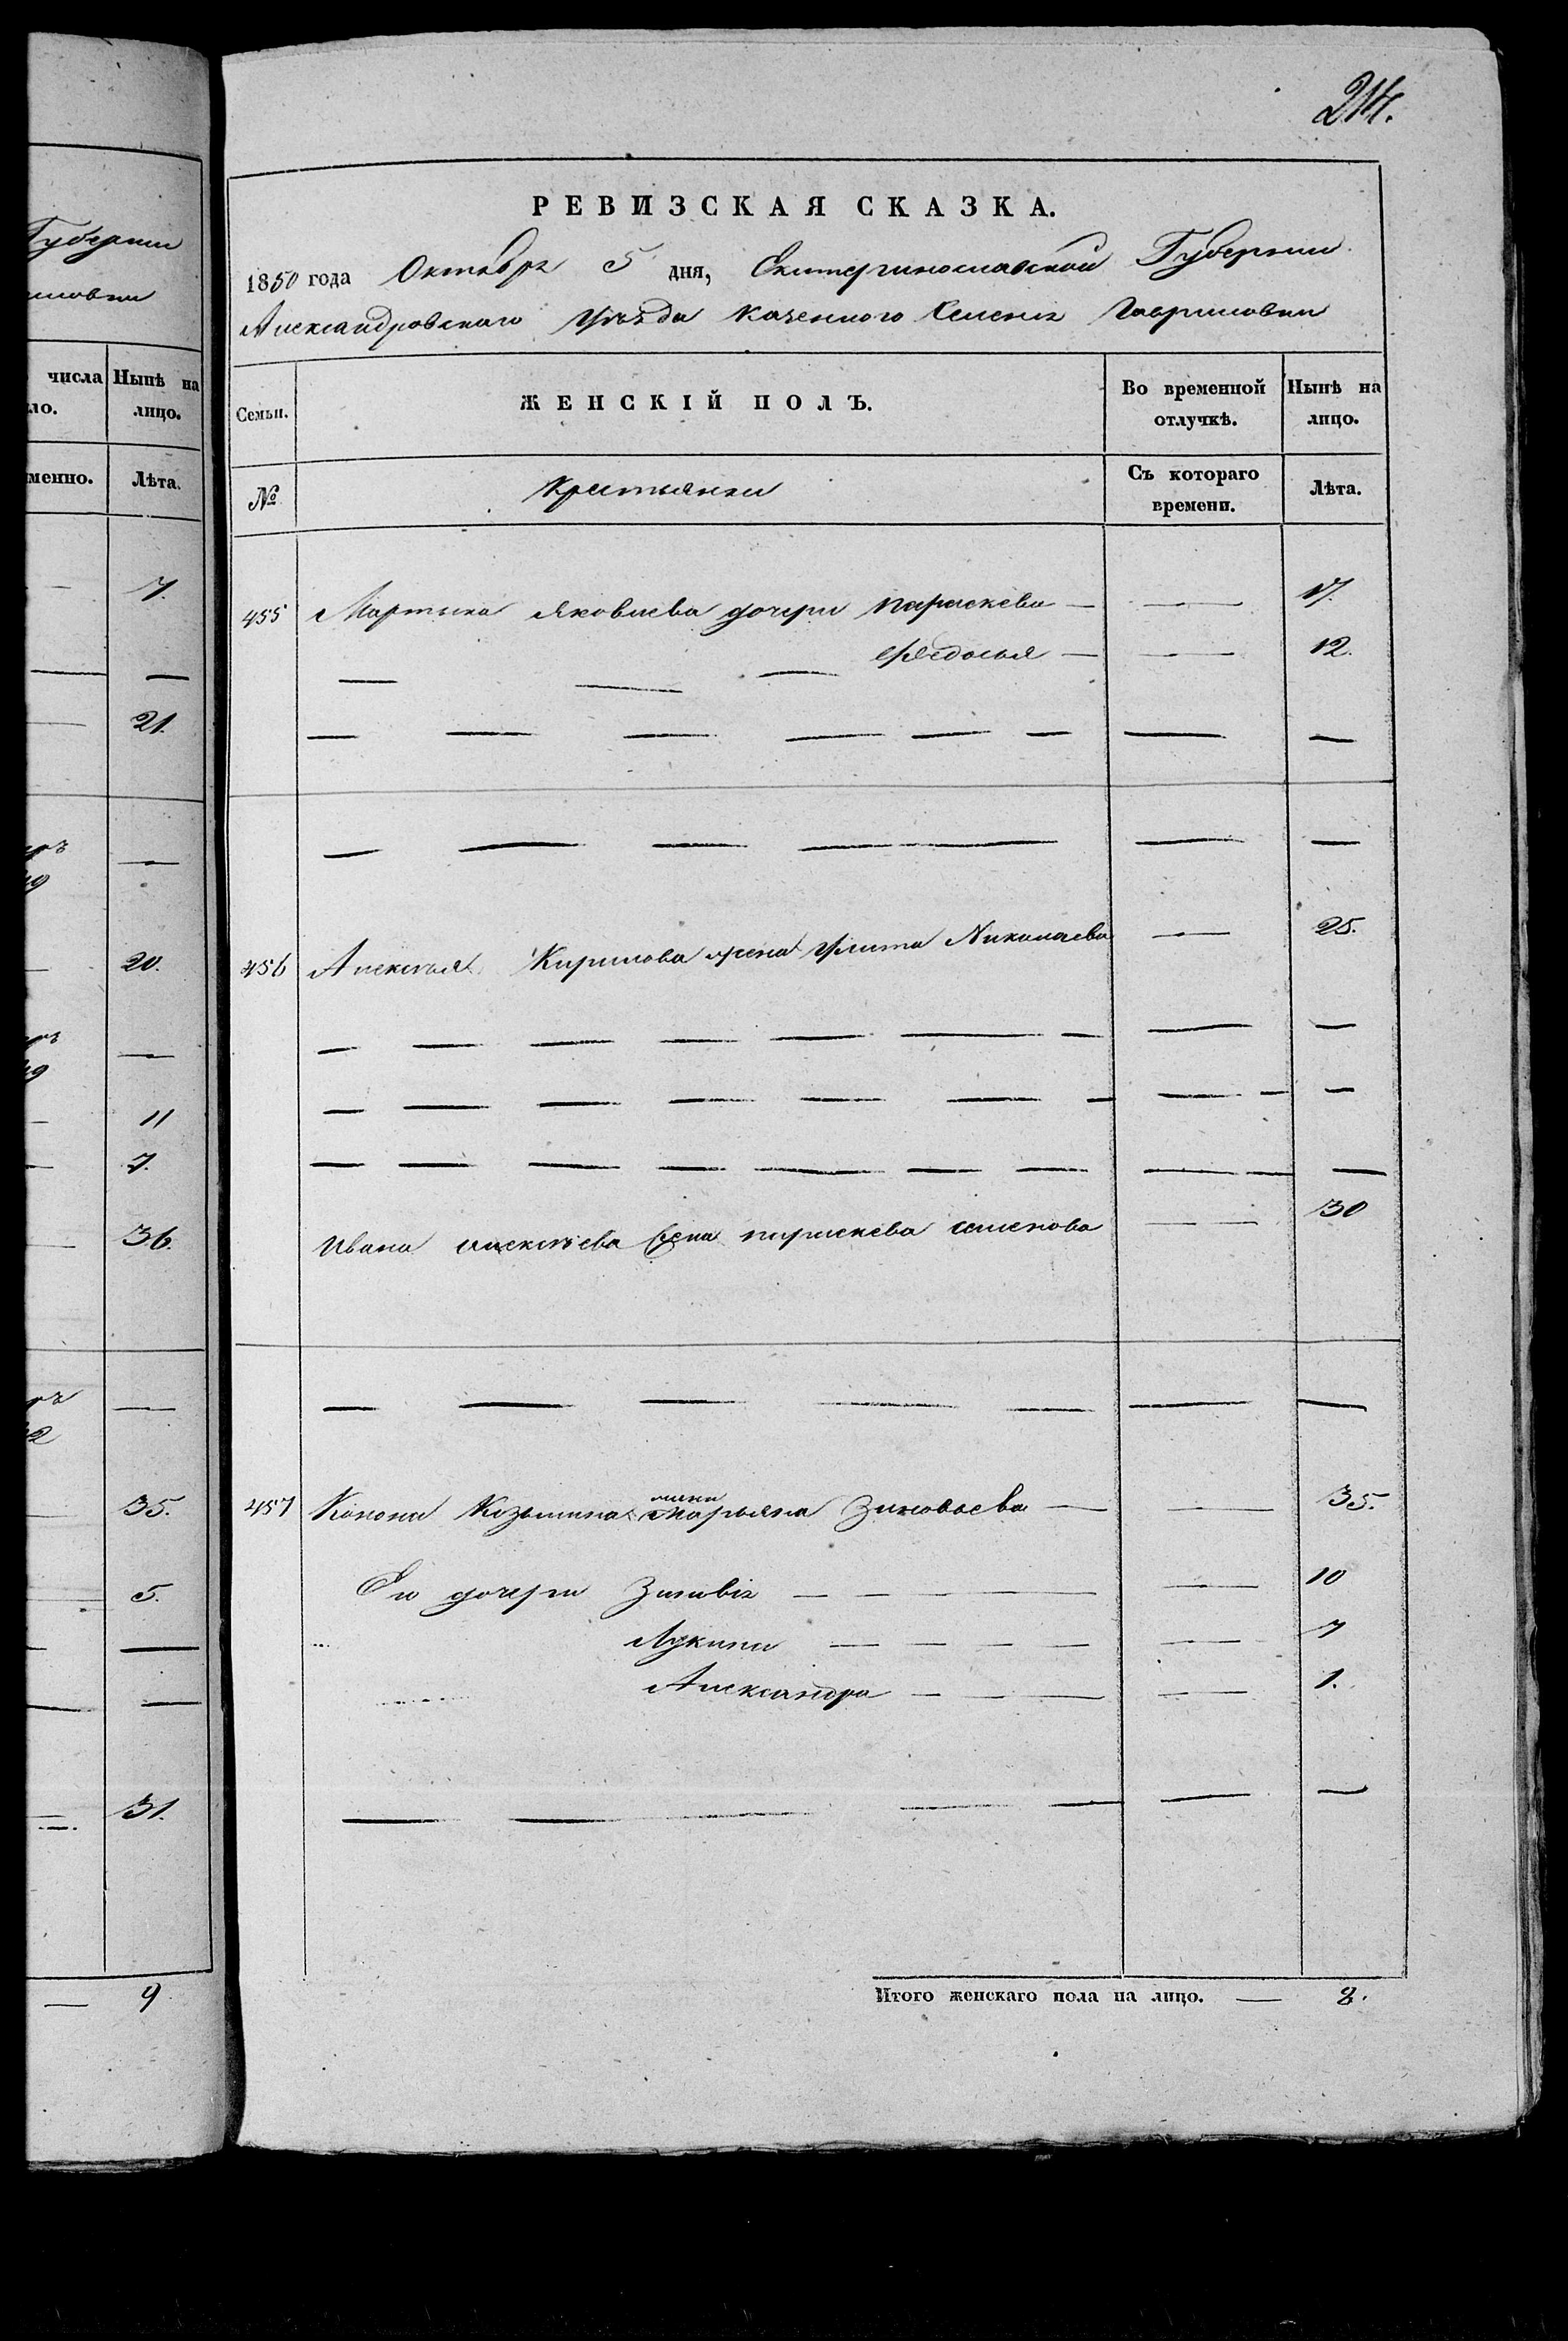 Губернии
числа Нынѣ на
ло. лицо.
менно. Лѣта.
7.
21.
20.
11
7.
36.
35.
5.
31.
9
214.
РЕВИЗСКАЯ СКАЗКА.
1850 года Октября 5 дня, Екатеринославской Губернии
Александровскаго Уѣзда Казенного Селенія Гавриловки
Семьи. ЖЕНСКІЙ ПОЛЪ. Во временной отлучкѣ. Нынѣ на лицо.
№ Крестьянки Съ котораго времени. Лѣта.
455 Мартина Яковлева дочери Параскева — — 17.
Федосья — — 12.
456 Алексѣя Кирилова жена Улита Николаева — 25.
Ивана Алексѣева жена параскева семенова — 30
457 Конона Козьмина жена Марьяна Зиновьева — — 35.
Его дочери Зиновія — 10
Лукия — 7
Александра — 1.
Итого женскаго пола на лицо. — 8.